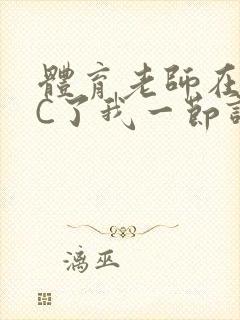 體育老師在
C了我一節
漓巫